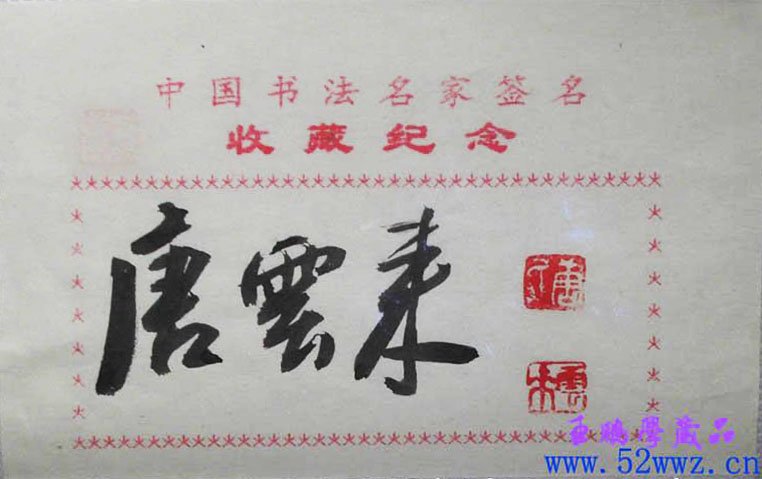 中国书法名家签名
收藏纪念
唐雲来
王鹏学藏品
www.52wwz.cn